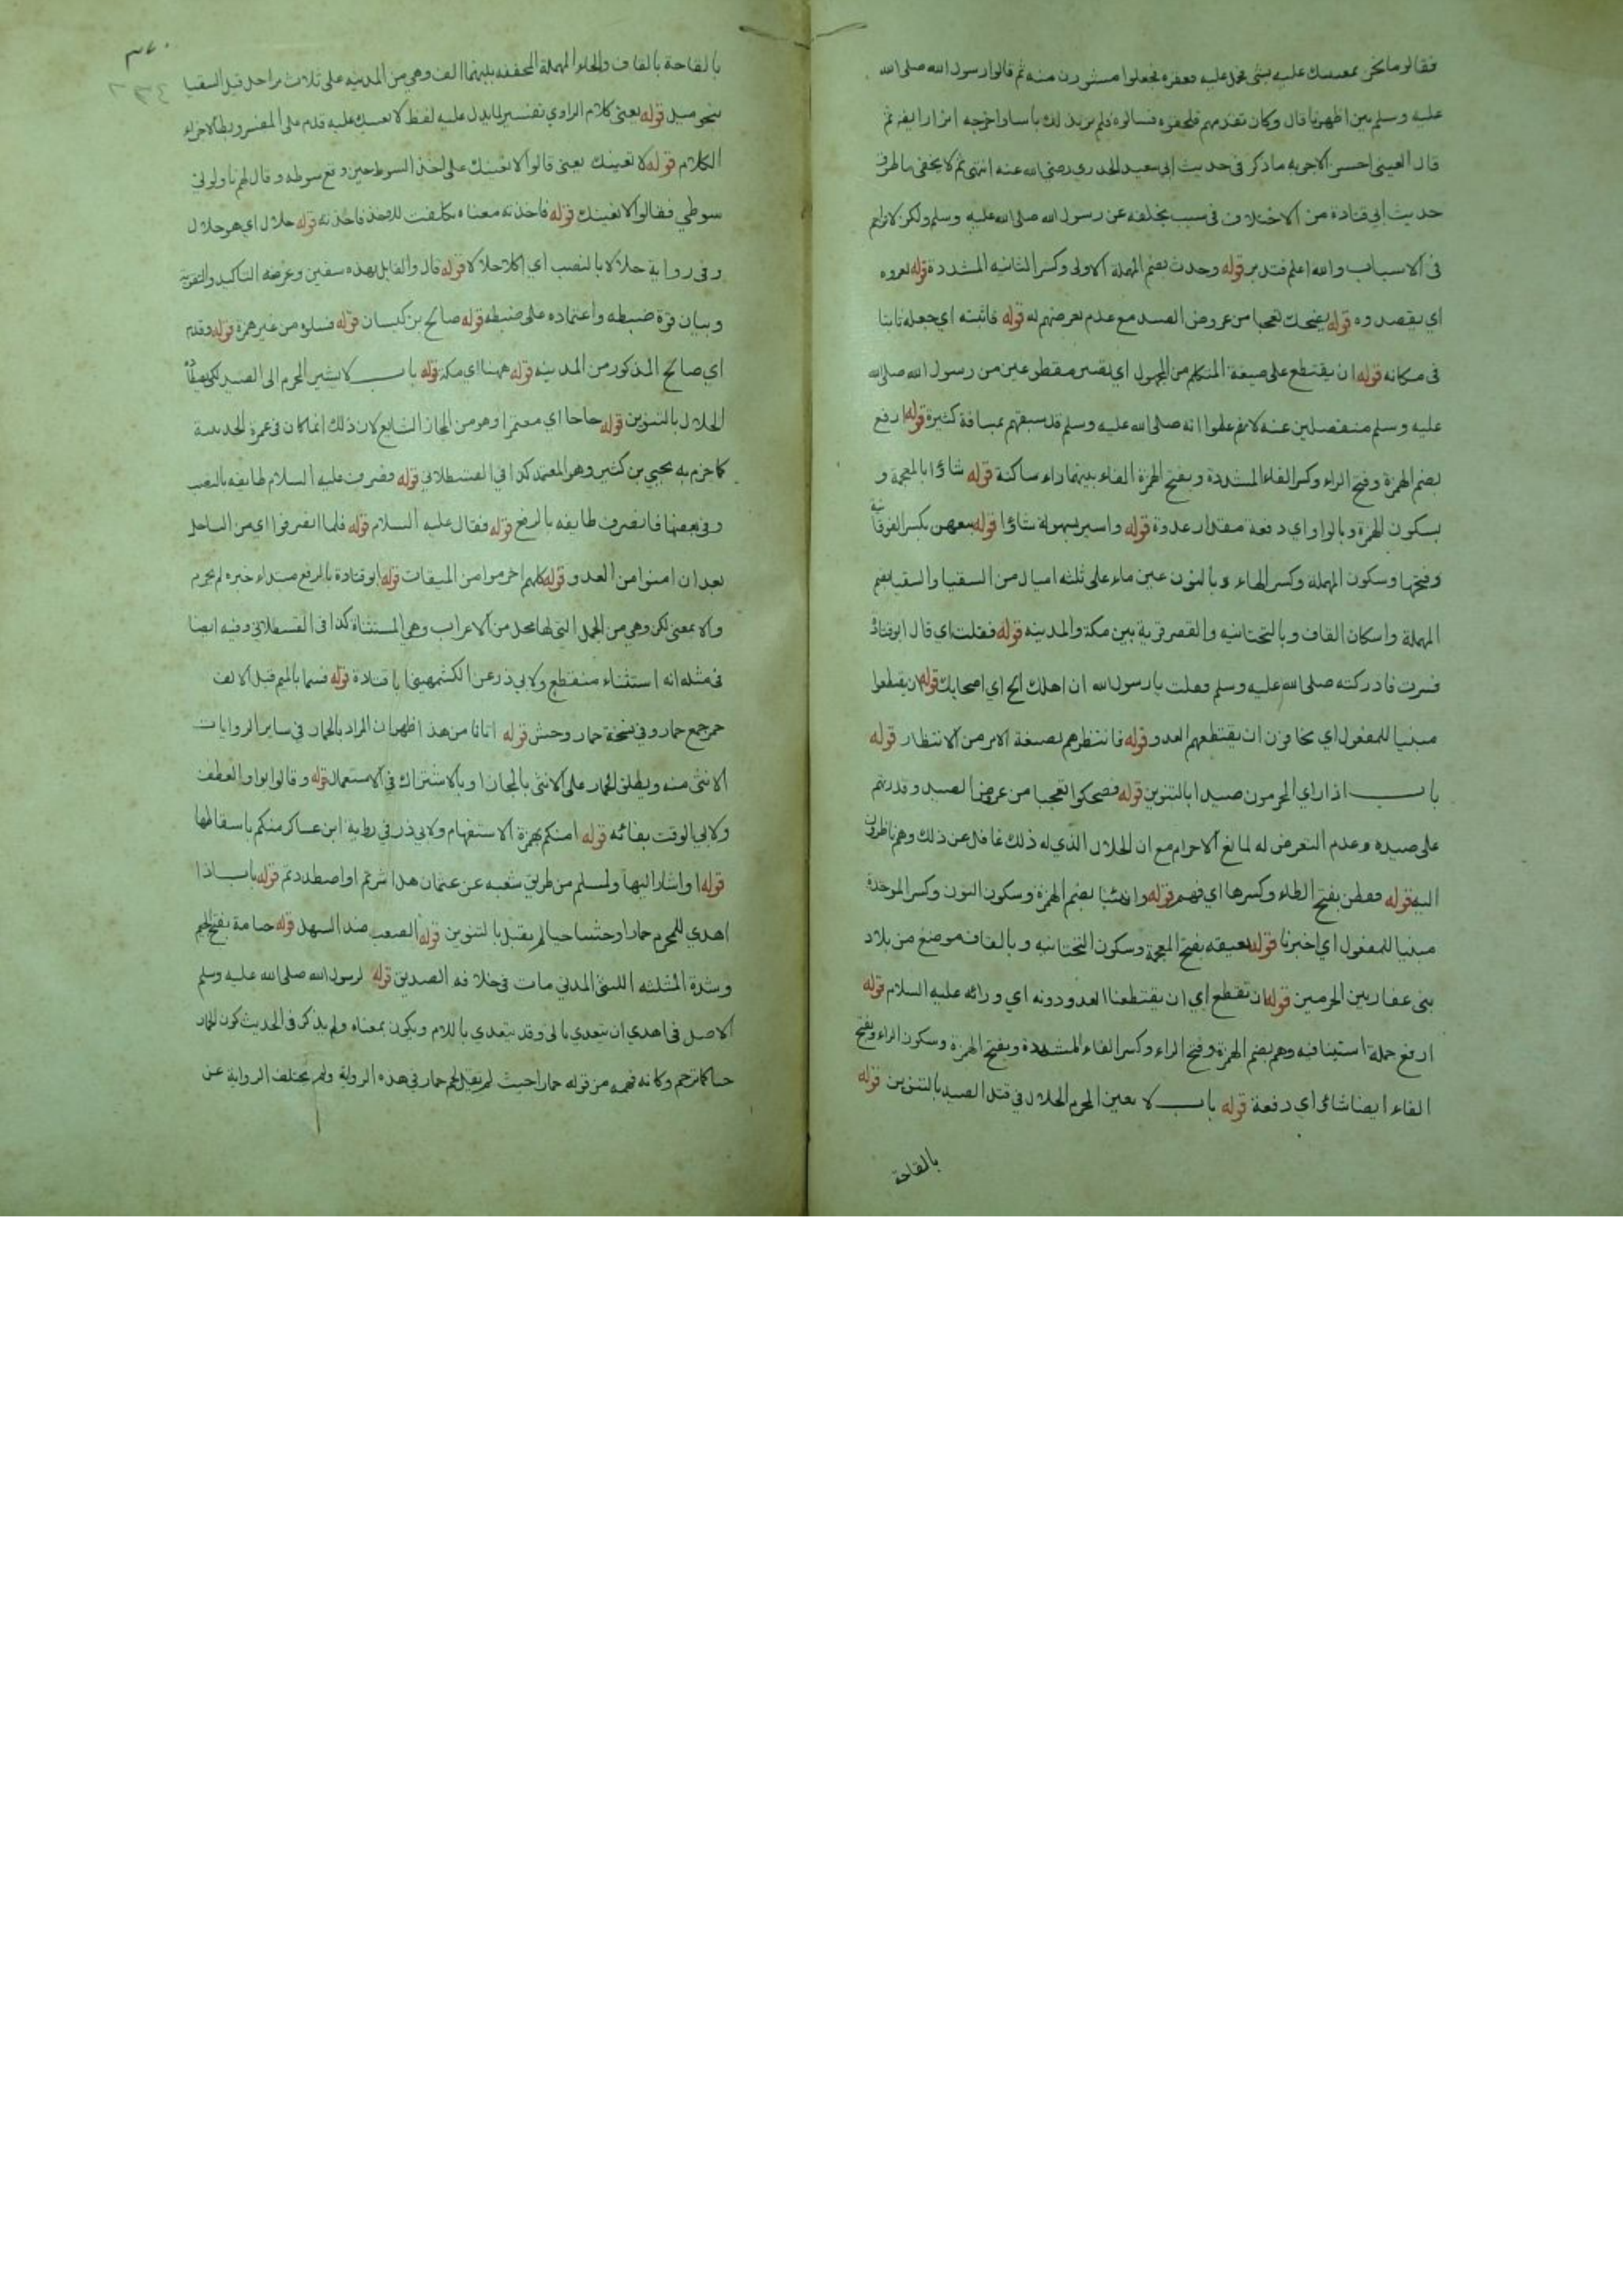 فقالوا ما نحن بمعينيك عليه بشيء فحمل عليه فعقره فجعلوا يشوون منه ثم قالوا رسول الله صلى الله
عليه وسلم بين اظهرنا قال وكان تقدمهم فلحقوه فسالوه فلم ير بذلك باسا واخرجه ثم
قال العيني احسن الاجوبه ما ذكر في حديث ابي سعيد الخدري رضي الله عنه انتهى ثم لا يخفى ما طرق
حديث ابي قتادة من الاختلاف في سبب تخلفه عن رسول الله صلى الله عليه وسلم ولكن لا تزاحم
في الاسباب والله اعلم فتدبر قوله وحدث بضم المهملة الاولى وكسر الثانيه المشددة قوله يغزوه
اي يقصدوه قوله يضحك تعجبا من عروض الصيد مع عدم تعرضهم له قوله فاثبته اي جعله ثابتا
في مكانه قوله ان يقتطع على صيغة المتكلم من المجهول اي نصير مقطوعين من رسول الله صلى الله
عليه وسلم منفصلين عنه لانهم علموا انه صلى الله عليه وسلم قد سبقهم بمسافة كثيرة قوله ارفع
بضم الهمزة وفتح الراء وكسر الفاء المشددة وبفتح الهمزة الفاء بينهما راء ساكنة قوله شاؤا بالمعجمة و
بسكون الهمزة وبالواو اي دفعة مقدار عدوة قوله واسير بسهولة شاؤا قوله بتعهن بكسر الفوقانية
وفتحها وسكون المهملة وكسر الهاء وبالنون عين ماء على ثلثه اميال من السقيا والسقيا بضم
المهملة واسكان القاف وبالتحتانيه والقصر قرية بين مكة والمدينه قوله فقلت اي قال ابو قتادة
فسرت فادركته صلى الله عليه وسلم فقلت يا رسول الله ان اهلك الخ اي اصحابك قوله ان يقطعوا
مبنيا للمفعول اي نخافون ان يقتطعهم العدو قوله فانتظرهم بصيغة الامر من الانتظار قوله
باب اذا راي المحرمون صيدا بالتنوين قوله فضحكوا تعجبا من عروض الصيد وقدرتهم
على صيده وعدم التعرض له لمانع الاحرام مع ان الحلال الذي له ذلك غافل عن ذلك وهم ناظرون
اليه قوله ففطن بفتح الطاء وكسرها اي فهم قوله وانبئنا بضم الهمزة وسكون النون وكسر الموحدة
مبنيا للمفعول اي اخبرنا قوله بغيقه بفتح المعجمة وسكون التحتانيه وبالقاف موضع من بلاد
بني غفار بين الحرمين قوله ان نقتطع اي ان يقتطعنا العدو دونه اي ورائه عليه السلام قوله
ارفع جملة استينافيه وهم بضم الهمزة وفتح الراء وكسر الفاء المشددة وبفتح الهمزة وسكون الراء وبفتح
الفاء ايضا شاؤا اي دفعة قوله باب لا يعين المحرم الحلال في قتل الصيد بالتنوين قوله
بالقاحة
٣٧٠
بالقاحة بالقاف والحاء المهملة المخففه بينهما الف وهي من المدينه على ثلاث مراحل قبل السقيا
بنحو ميل قوله يعني كلام الراوي تفسير لما يدل عليه لفظ لا نعينك عليه قدم على المفسر وبطلا جزاء
الكلام قوله لا نعينك يعني قالوا لا نعينك على اخذ السوط حين وقع سوطه وقال لهم ناولوني
سوطي فقالوا لا نعينك قوله فاخذته معناه تكلفت للاخذ فاخذته قوله حلال اي هو حلال
وفي رواية حلالا بالنصب اي اكلا حلالا قوله قال والقايل بهذه سفين وغرضه التاكيد والتقوية
وبيان قوة ضبطه واعتماده على ضبطه قوله صالح بن كيسان قوله فسلوه من غير همزة قوله وقدم
اي صالح المذكور من المدينه قوله ههنا اي مكة قوله باب لا يشير المحرم الى الصيد لكي يصطاده
الحلال بالتنوين قوله حاجا اي معتمرا وهو من المجاز الشايع لان ذلك انما كان في عمرة الحديبية
كما جزم به يحيي بن كثير وهو المعتمد كذا في القسطلاني قوله فصرف عليه السلام طايفه بالنصب
وفي بعضها فانصرف طايفه بالرفع قوله فقال عليه السلام قوله فلما انصرفوا اي من الساحل
بعد ان امنوا من العدو قوله كلهم احرموا من الميقات قوله ابو قتادة بالرفع مبتداء خبره لم يحرم
والا بمعنى لكن وهي من الجمل التي لها محل من الاعراب وهي المستثناة كذا في القسطلاني وفيه ايضا
في مثله انه استثناء منقطع ولابي ذر عن الكشميهني ابا قتادة قوله فسما بالميم قبل الالف
حمر جمع حمار وفي نسخة حمار وحش قوله اتانا من هذا اظهر ان المراد بالحمار في ساير الروايات
الانثى منه ويطلق الحمار على الانثى بالمجاز او بالاشتراك في الاستعمال قوله وقالوا بواو العطف
ولابي الوقت بفائه قوله امنكم بهمزة الاستفهام ولابي ذر في رواية ابن عساكر منكم باسقاطها
قوله او اشار اليها ولمسلم من طريق شعبه عن عثمان هذا اشرتم او اصطدتم قوله باب اذا
اهدي للمحرم حمارا وحشيا حيا لم يقبل بالتنوين قوله الصعب ضد السهل قوله جثامة بفتح الجيم
وشدة المثلثه الليثي المدني مات في خلافه الصديق قوله لرسول الله صلى الله عليه وسلم
الاصل في اهدي ان يتعدي بالى وقد يتعدي باللام ويكون بمعناه ولم يذكر في الحديث كون الحمار
حيا كما ترجم وكانه فهمه من قوله حمارا حيث لم يقل لحم حمار في هذه الرواية ولم يختلف الرواية عن